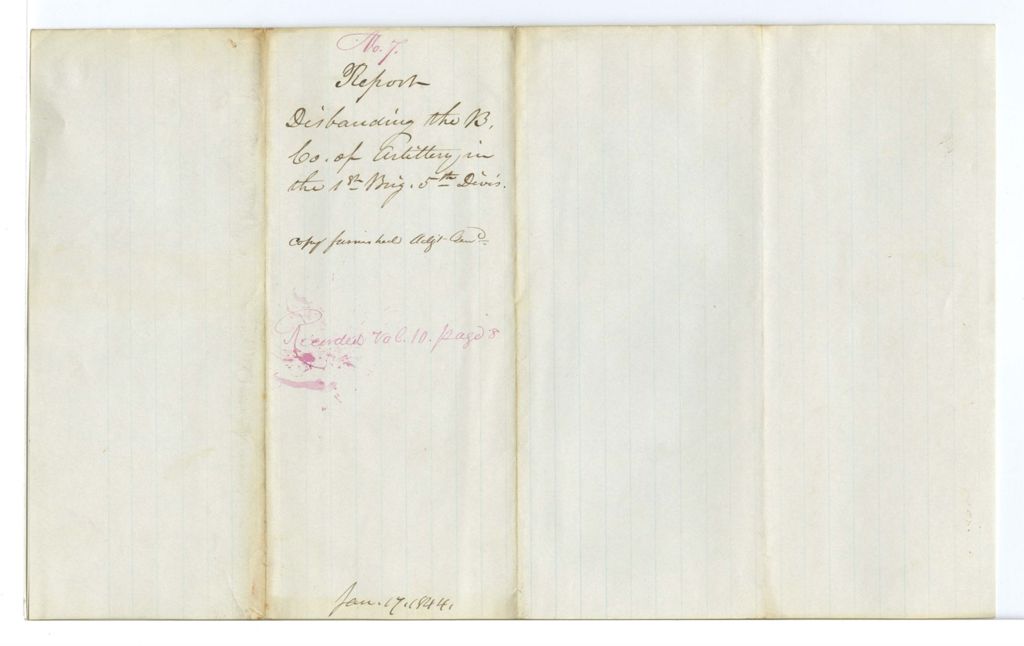 No. 7.
Report
Disbanding the B.
Co. of Artillery, in
the 1st Brig. 5th Divis.
copy furnished Adjt Genl
Recorded Vol. 10. page 8
Jan. 17. 1844.